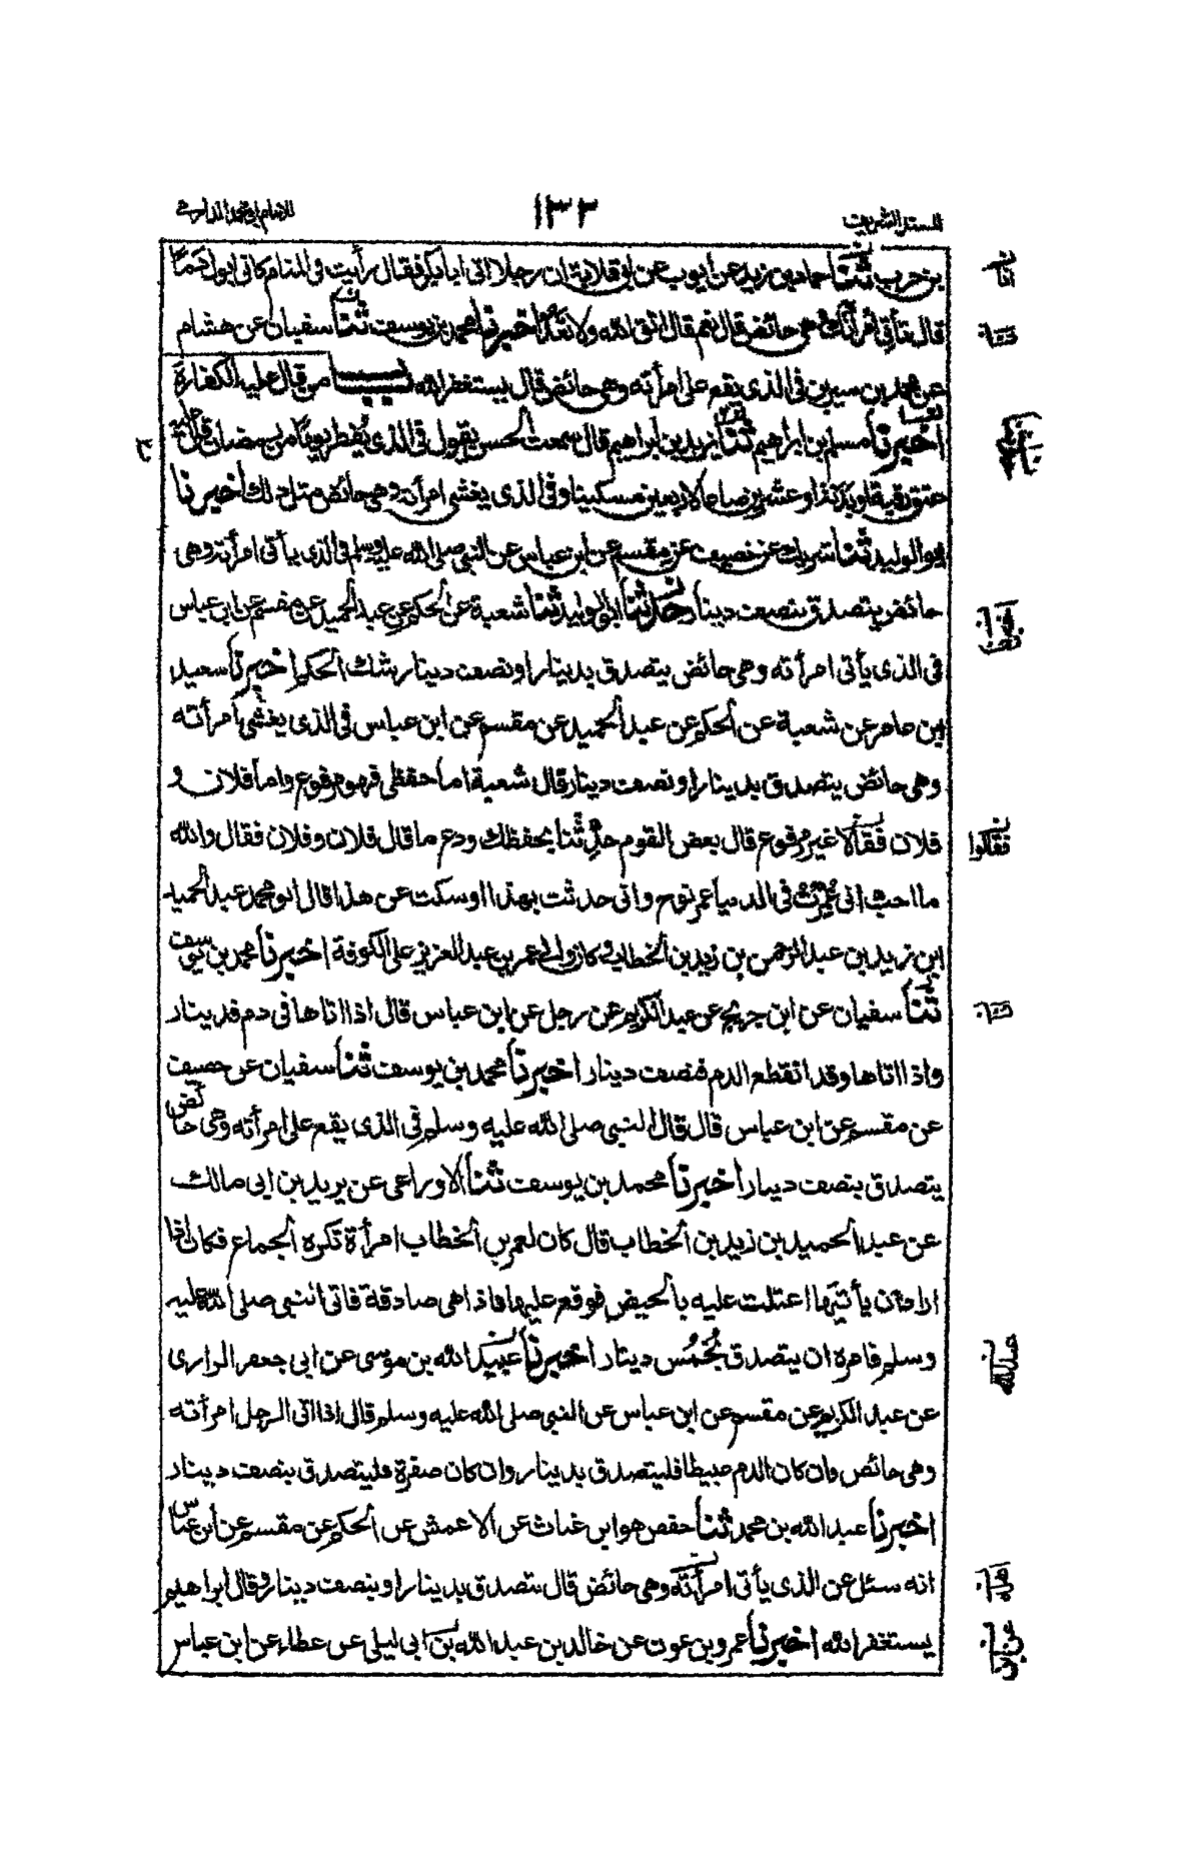 للمسند الشريف
١٣٣
للامام ابي محمد الدارمي
بن حرب ثنا حماد بن زيد عن ايوب عن ابي قلابة ان رجلا اتى ابا بكر فقال رأيت في المنام كاني ابول دما
قال تأتي امرأتك وهي حائض قال نعم قال اتق الله ولا تعد اخبرنا محمد بن يوسف ثنا سفيان عن هشام
عن محمد بن سيرين في الذي يقع على امرأته وهي حائض قال يستغفر الله باب من قال عليه الكفارة
اخبرنا مسلم بن ابراهيم ثنا يزيد بن ابراهيم قال سمعت الحسن يقول في الذي يفطر يوما من رمضان قال عليه
عتق رقبة او بدنة او عشرين صاعا لاربعين مسكينا وفي الذي يغشى امرأته وهي حائض مثل ذلك اخبرنا
ابو الوليد ثنا شريك عن خصيف عن مقسم عن ابن عباس عن النبي صلى الله عليه وسلم في الذي يأتي امرأته وهي
حائض يتصدق بنصف دينار حدثنا ابو الوليد ثنا شعبة عن الحكم عن عبد الحميد عن مقسم عن ابن عباس
في الذي يأتي امرأته وهي حائض يتصدق بدينار او نصف دينار شك الحكم اخبرنا سعيد
بن عامر عن شعبة عن الحكم عن عبد الحميد عن مقسم عن ابن عباس في الذي يغشى امرأته
وهي حائض يتصدق بدينار او نصف دينار قال شعبة اما حفظي فهو مرفوع واما فلان و
فلان فقالا غير مرفوع قال بعض القوم حدثنا بحفظك ودع ما قال فلان وفلان فقال والله
ما احب اني عمرت في الدنيا عمر نوح واني حدثت بهذا او سكت عن هذا قال ابو محمد عبد الحميد
ابن زيد بن عبد الرحمن بن زيد بن الخطاب وكان والي عمر بن عبد العزيز على الكوفة اخبرنا محمد بن يوسف
ثنا سفيان عن ابن جريج عن عبد الكريم عن رجل عن ابن عباس قال اذا اتاها في دم فدينار
واذا اتاها وقد انقطع الدم فنصف دينار اخبرنا محمد بن يوسف ثنا سفيان عن خصيف
عن مقسم عن ابن عباس قال قال النبي صلى الله عليه وسلم في الذي يقع على امرأته وهي حائض
يتصدق بنصف دينار اخبرنا محمد بن يوسف ثنا الاوزاعي عن يزيد بن ابي مالك
عن عبد الحميد بن زيد بن الخطاب قال كان لعمر بن الخطاب امرأة تكره الجماع فكان اذا
اراد ان يأتيها اعتلت عليه بالحيض فوقع عليها فاذا هي صادقة فاتى النبي صلى الله عليه
وسلم فامره ان يتصدق بخمس دينار اخبرنا عبيد الله بن موسى عن ابي جعفر الرازي
عن عبد الكريم عن مقسم عن ابن عباس عن النبي صلى الله عليه وسلم قال اذا اتى الرجل امرأته
وهي حائض وان كان الدم عبيطا فليتصدق بدينار وان كان صفرة فليتصدق بنصف دينار
اخبرنا عبد الله بن محمد ثنا حفص هو ابن غياث عن الاعمش عن الحكم عن مقسم عن ابن عباس
انه سئل عن الذي يأتي امرأته وهي حائض قال يتصدق بدينار او بنصف دينار وقال ابراهيم
يستغفر الله اخبرنا عمرو بن عون عن خالد بن عبد الله بن ابي ليلى عن عطاء عن ابن عباس
فقالوا
عبد الله